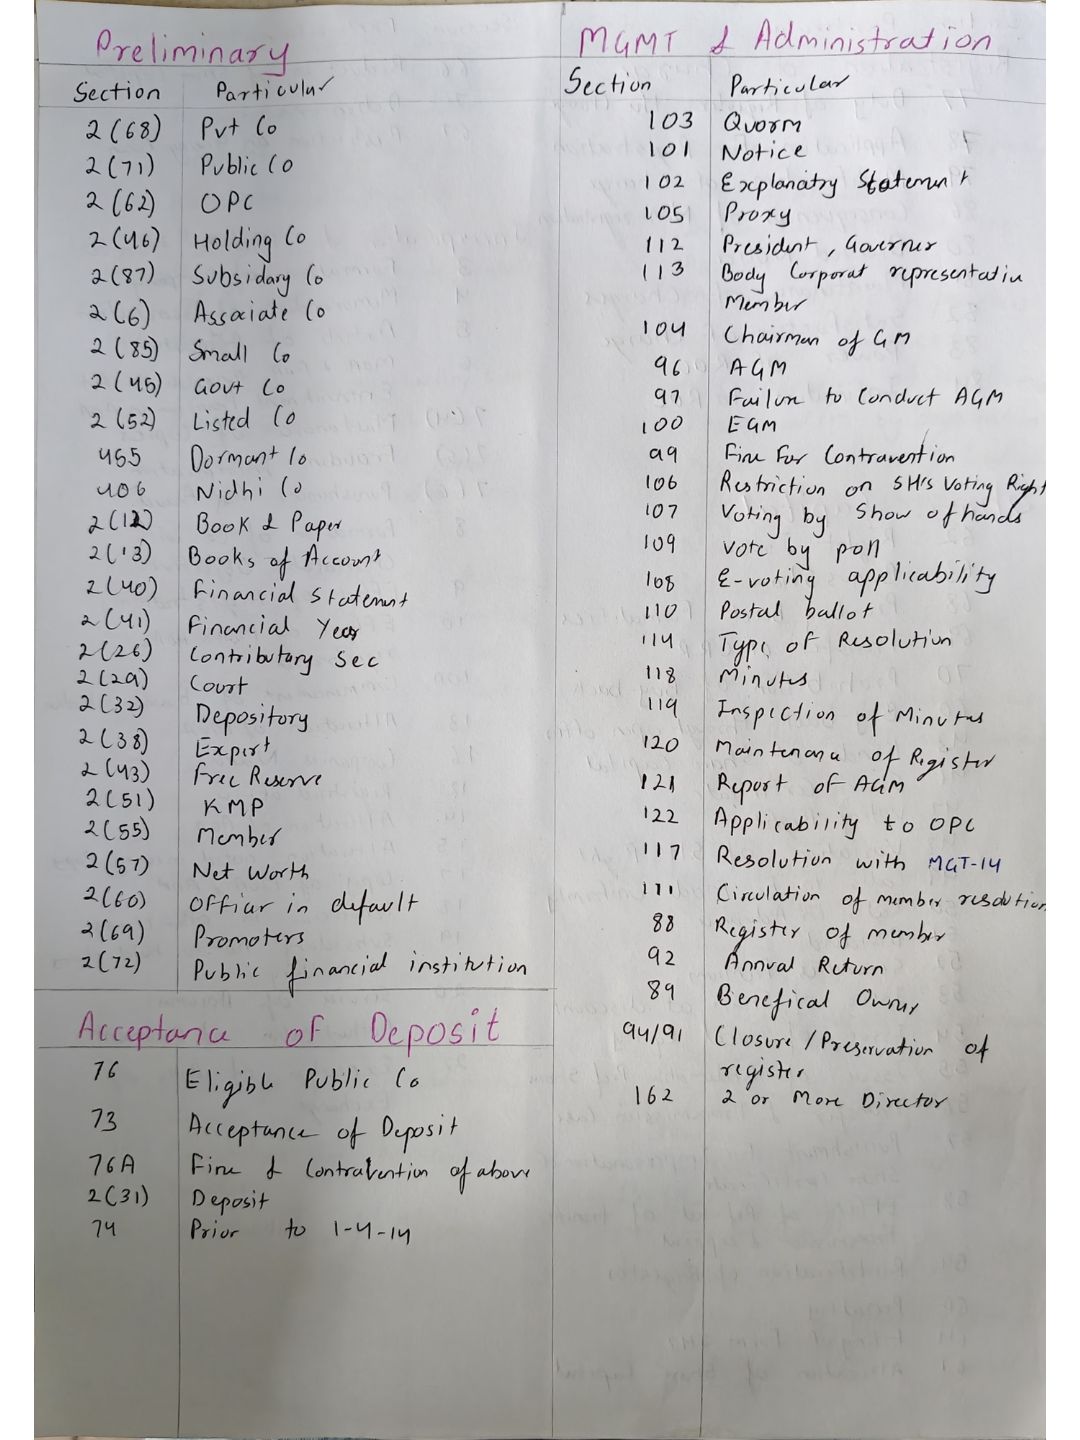 Preliminary
Section Particular
2(68) Pvt Co
2(71) Public Co
2(62) OPC
2(46) Holding Co
2(87) Subsidary Co
2(6) Assaiate Co
2(85) Small Co
2(45) Govt Co
2(52) Listed Co
455 Dormant Co
406 Nidhi Co
2(12) Book & Paper
2(13) Books of Account
2(40) Financial Statement
2(41) Financial Year
2(26) Contributary Sec
2(29) Court
2(32) Depository
2(38) Expert
2(43) Free Reserve
2(51) KMP
2(55) Member
2(57) Net Worth
2(60) Officer in default
2(69) Promoters
2(72) Public financial institution
Acceptance of Deposit
76 Eligible Public Co
73 Acceptance of Deposit
76A Fine & Contravention of above
2(31) Deposit
74 Prior to 1-4-14
MGMT & Administration
Section Particular
103 Quorm
101 Notice
102 Explanatry Statement
105 Proxy
112 President, Governer
113 Body Corporat representativ
Member
104 Chairman of GM
96 AGM
97 Failure to Conduct AGM
100 EGM
99 Fine For Contravention
106 Restriction on SH's Voting Right
107 Voting by Show of hands
109 Vote by poll
108 E-voting applicability
110 Postal ballot
114 Type of Resolution
118 Minutes
119 Inspection of Minutes
120 Maintenance of Register
121 Report of AGM
122 Applicability to OPC
117 Resolution with MGT-14
111 Circulation of member resolution
88 Register of member
92 Annual Return
89 Benefical Owner
94/91 Closure / Preservation of
register
162 2 or More Director